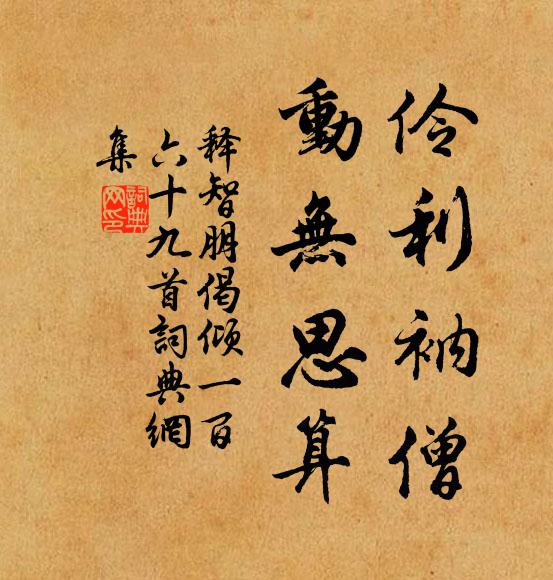 伶利衲僧
動無思算
释智朋偈倾一百
六十九首詞典網
集
詞典
网印